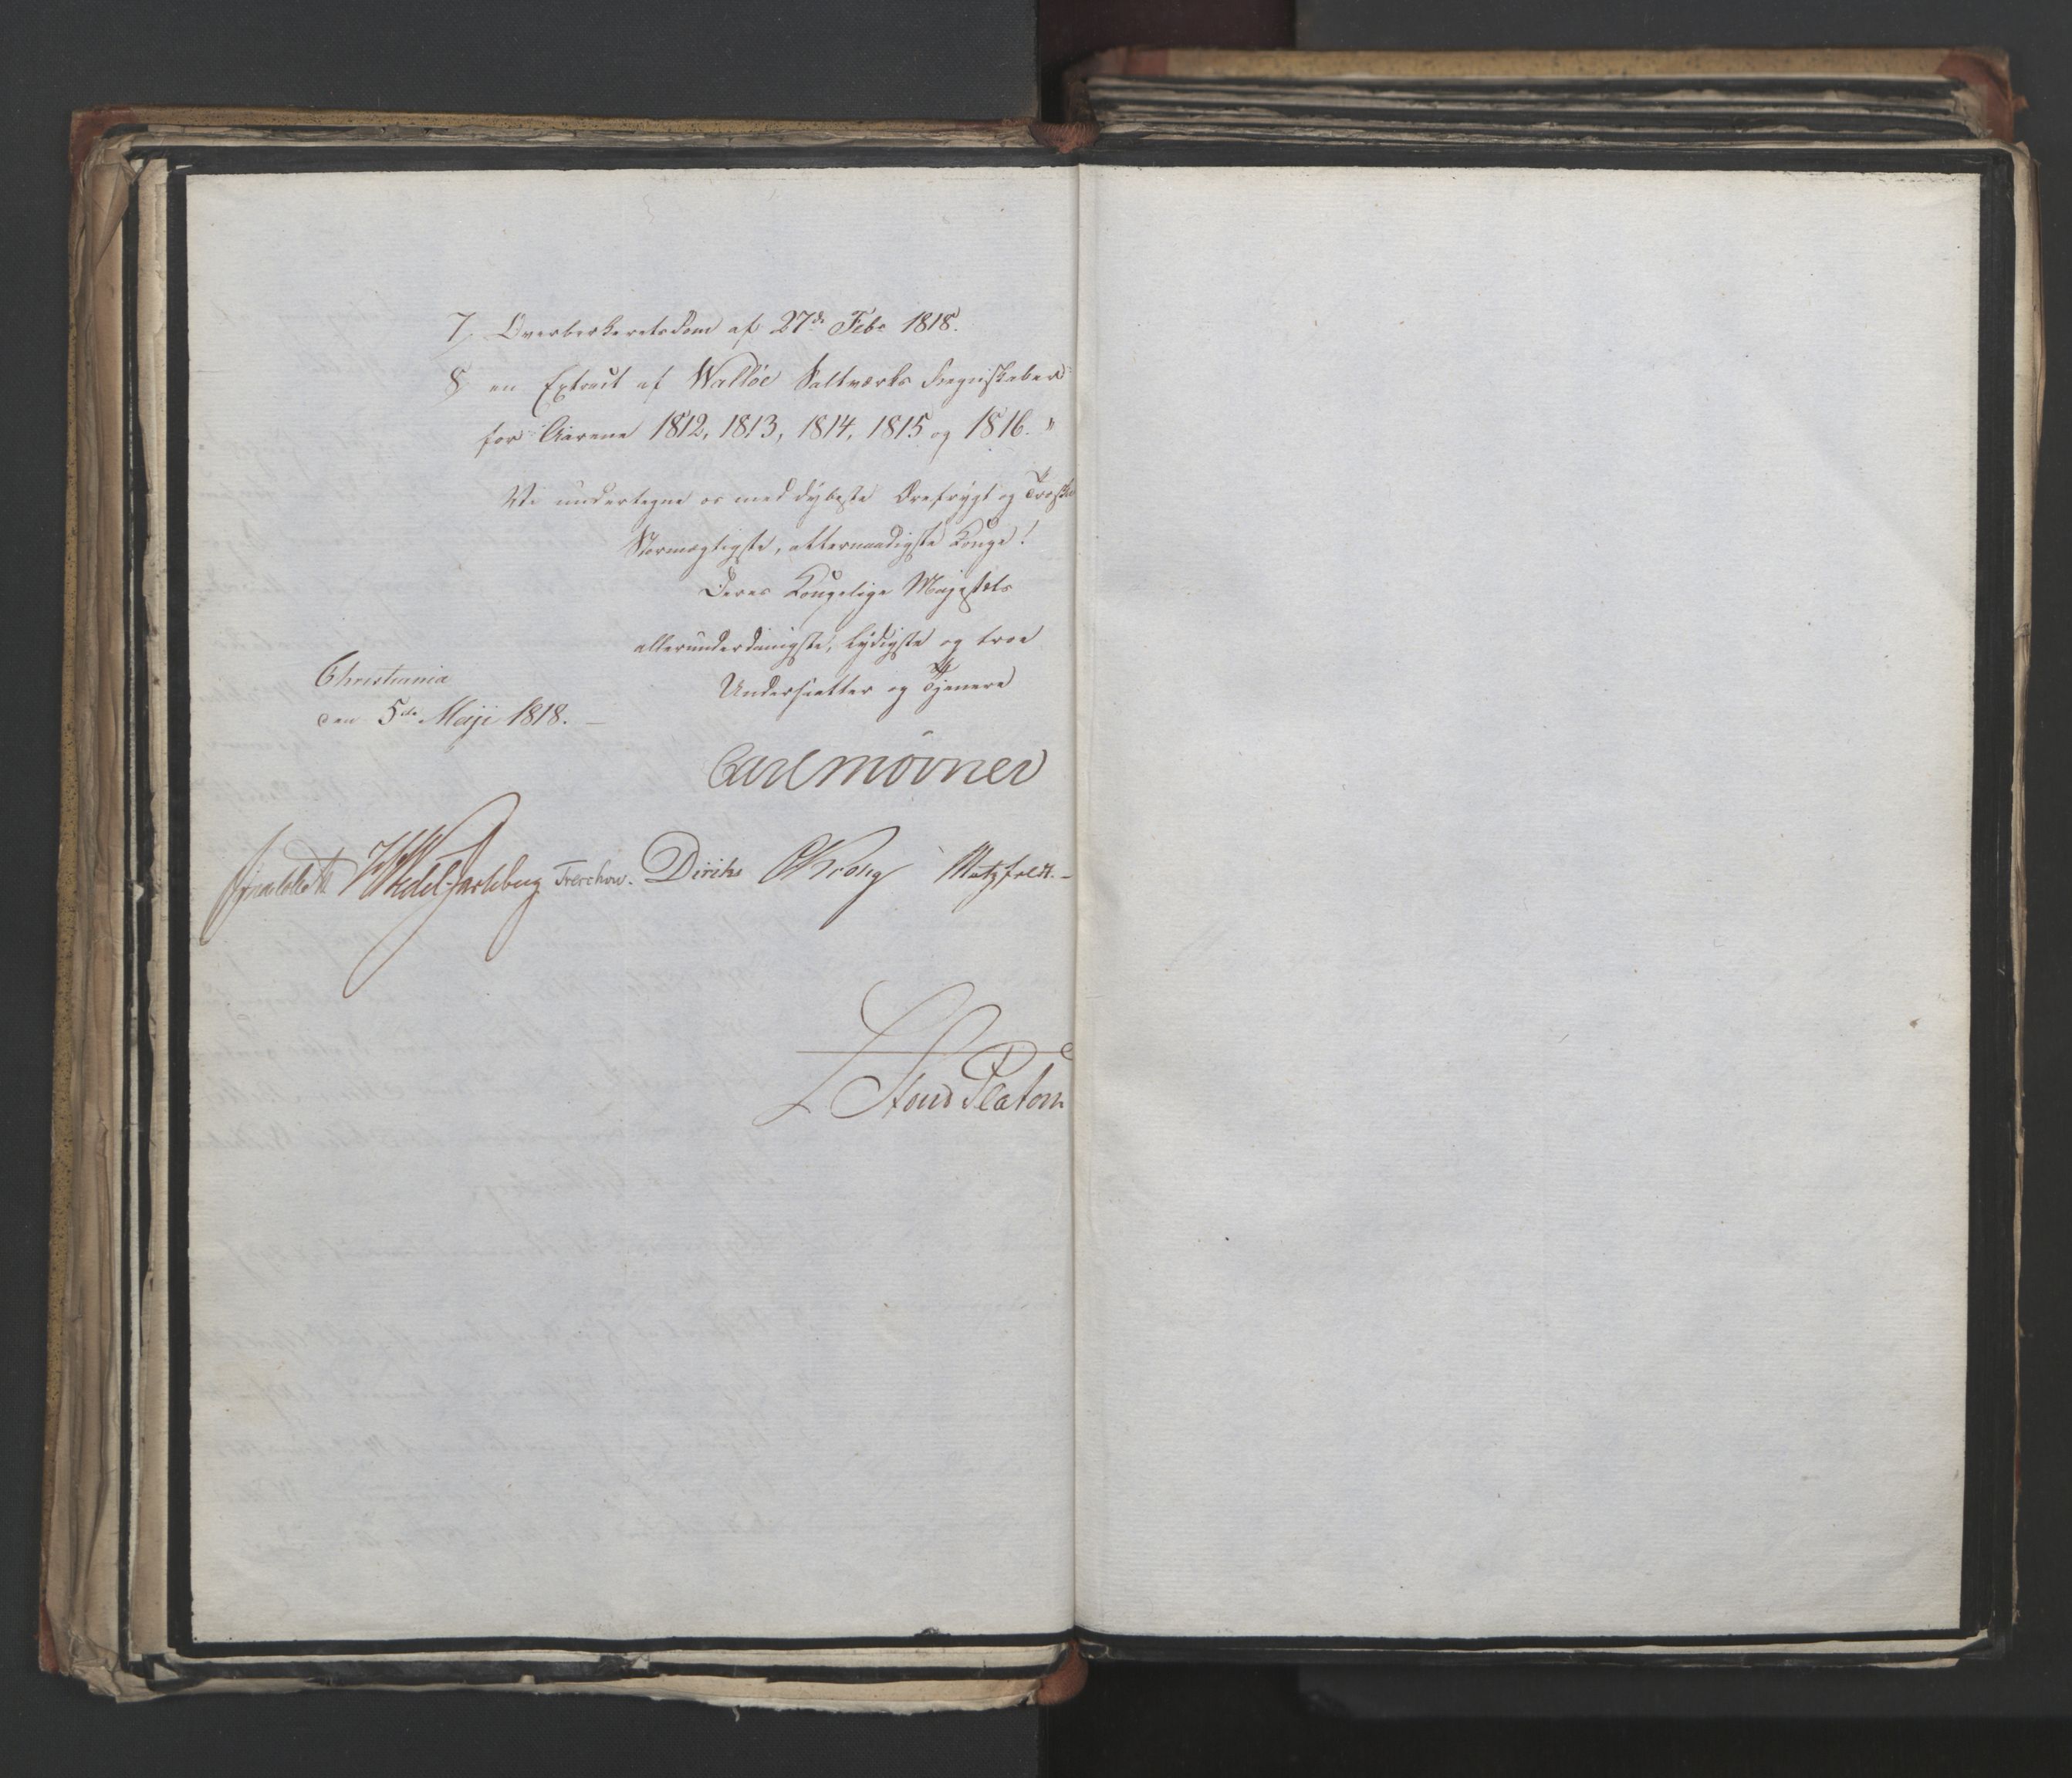 7. Overberkeretsdom af 27de Febr 1818.
8 en Extract af Walløe Saltværks Regnskaber
for Aarene 1812, 1813, 1814, 1815 og 1816. "
Vi undertegne os med dybeste Ærefrygt og Troskab
Stormægtigste, allernaadigste Konge!
Deres Kongelige Majestæts
allerunderdanigste, lydigste og troe
Undersaatter og Tjenere
Christiania
den 5de Maji 1818. –
Carl Mörner
HWedel-Jarlsberg Treschow. Diriks Krohg Motzfeldt. –
Stoud Platou